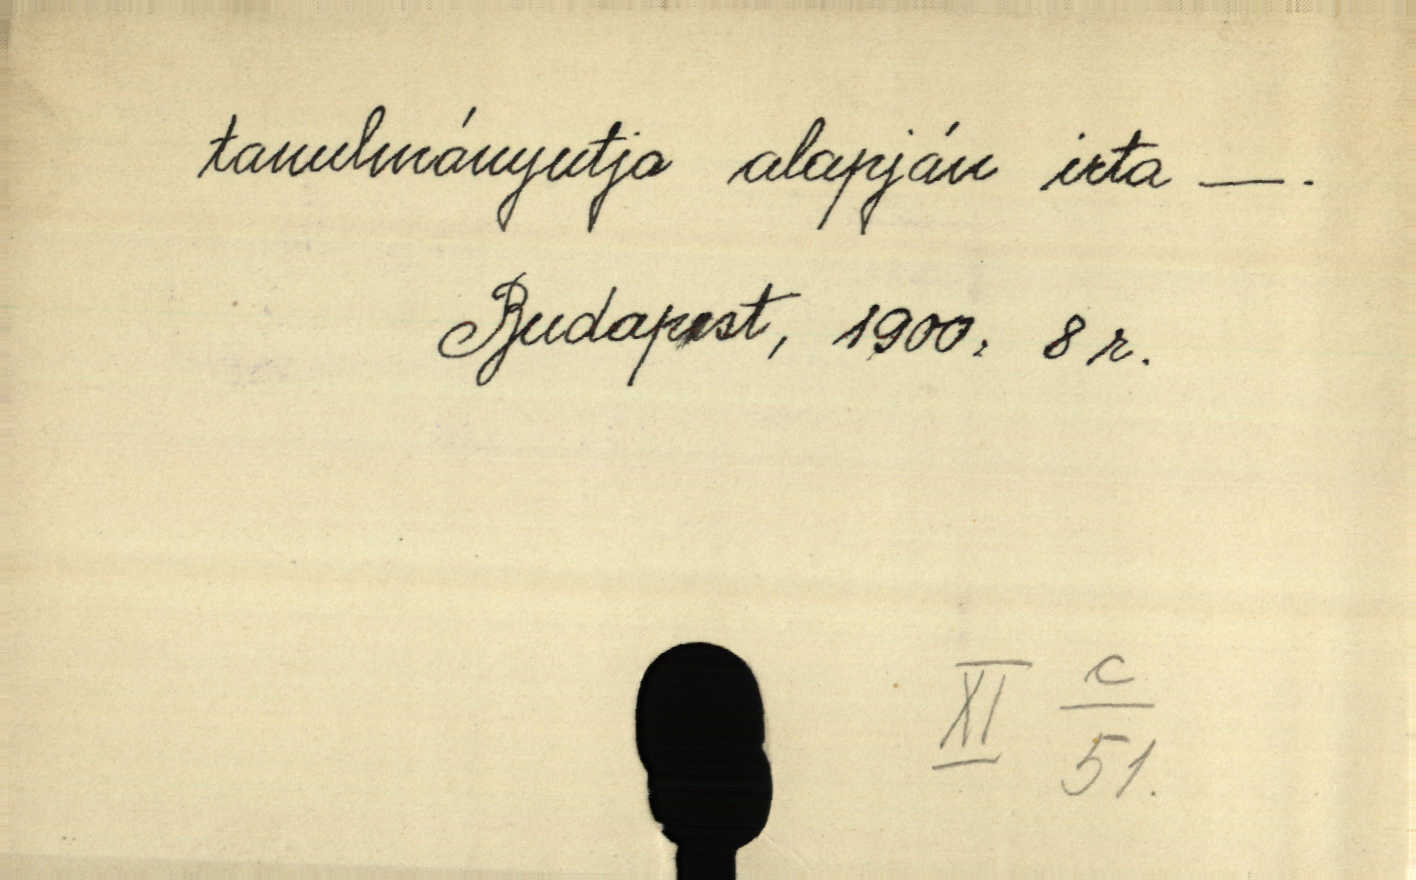 tanulmányutja alapján irta —.
Budapest, 1900. 8 r.
XI c/51.